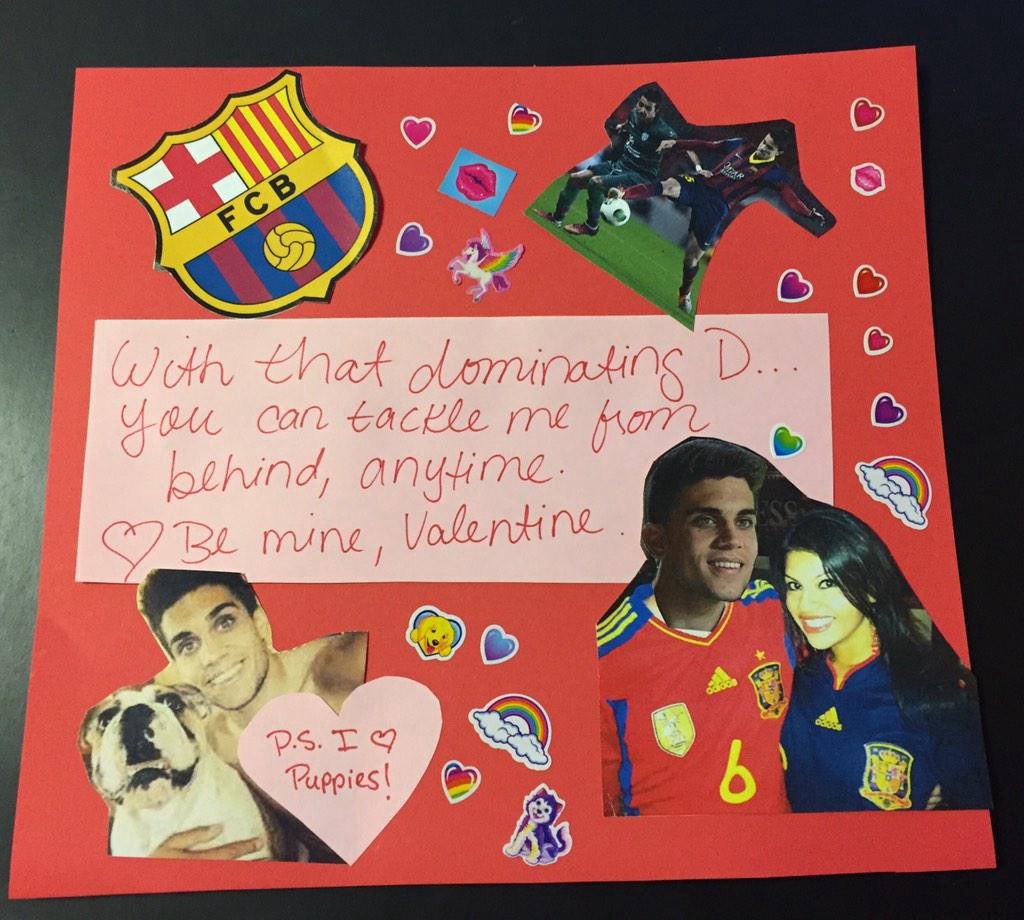 FCB
With that dominating D...
you can tackle me from
behind, anytime.
♡ Be mine, Valentine.
P.S. I ♡
Puppies!
6